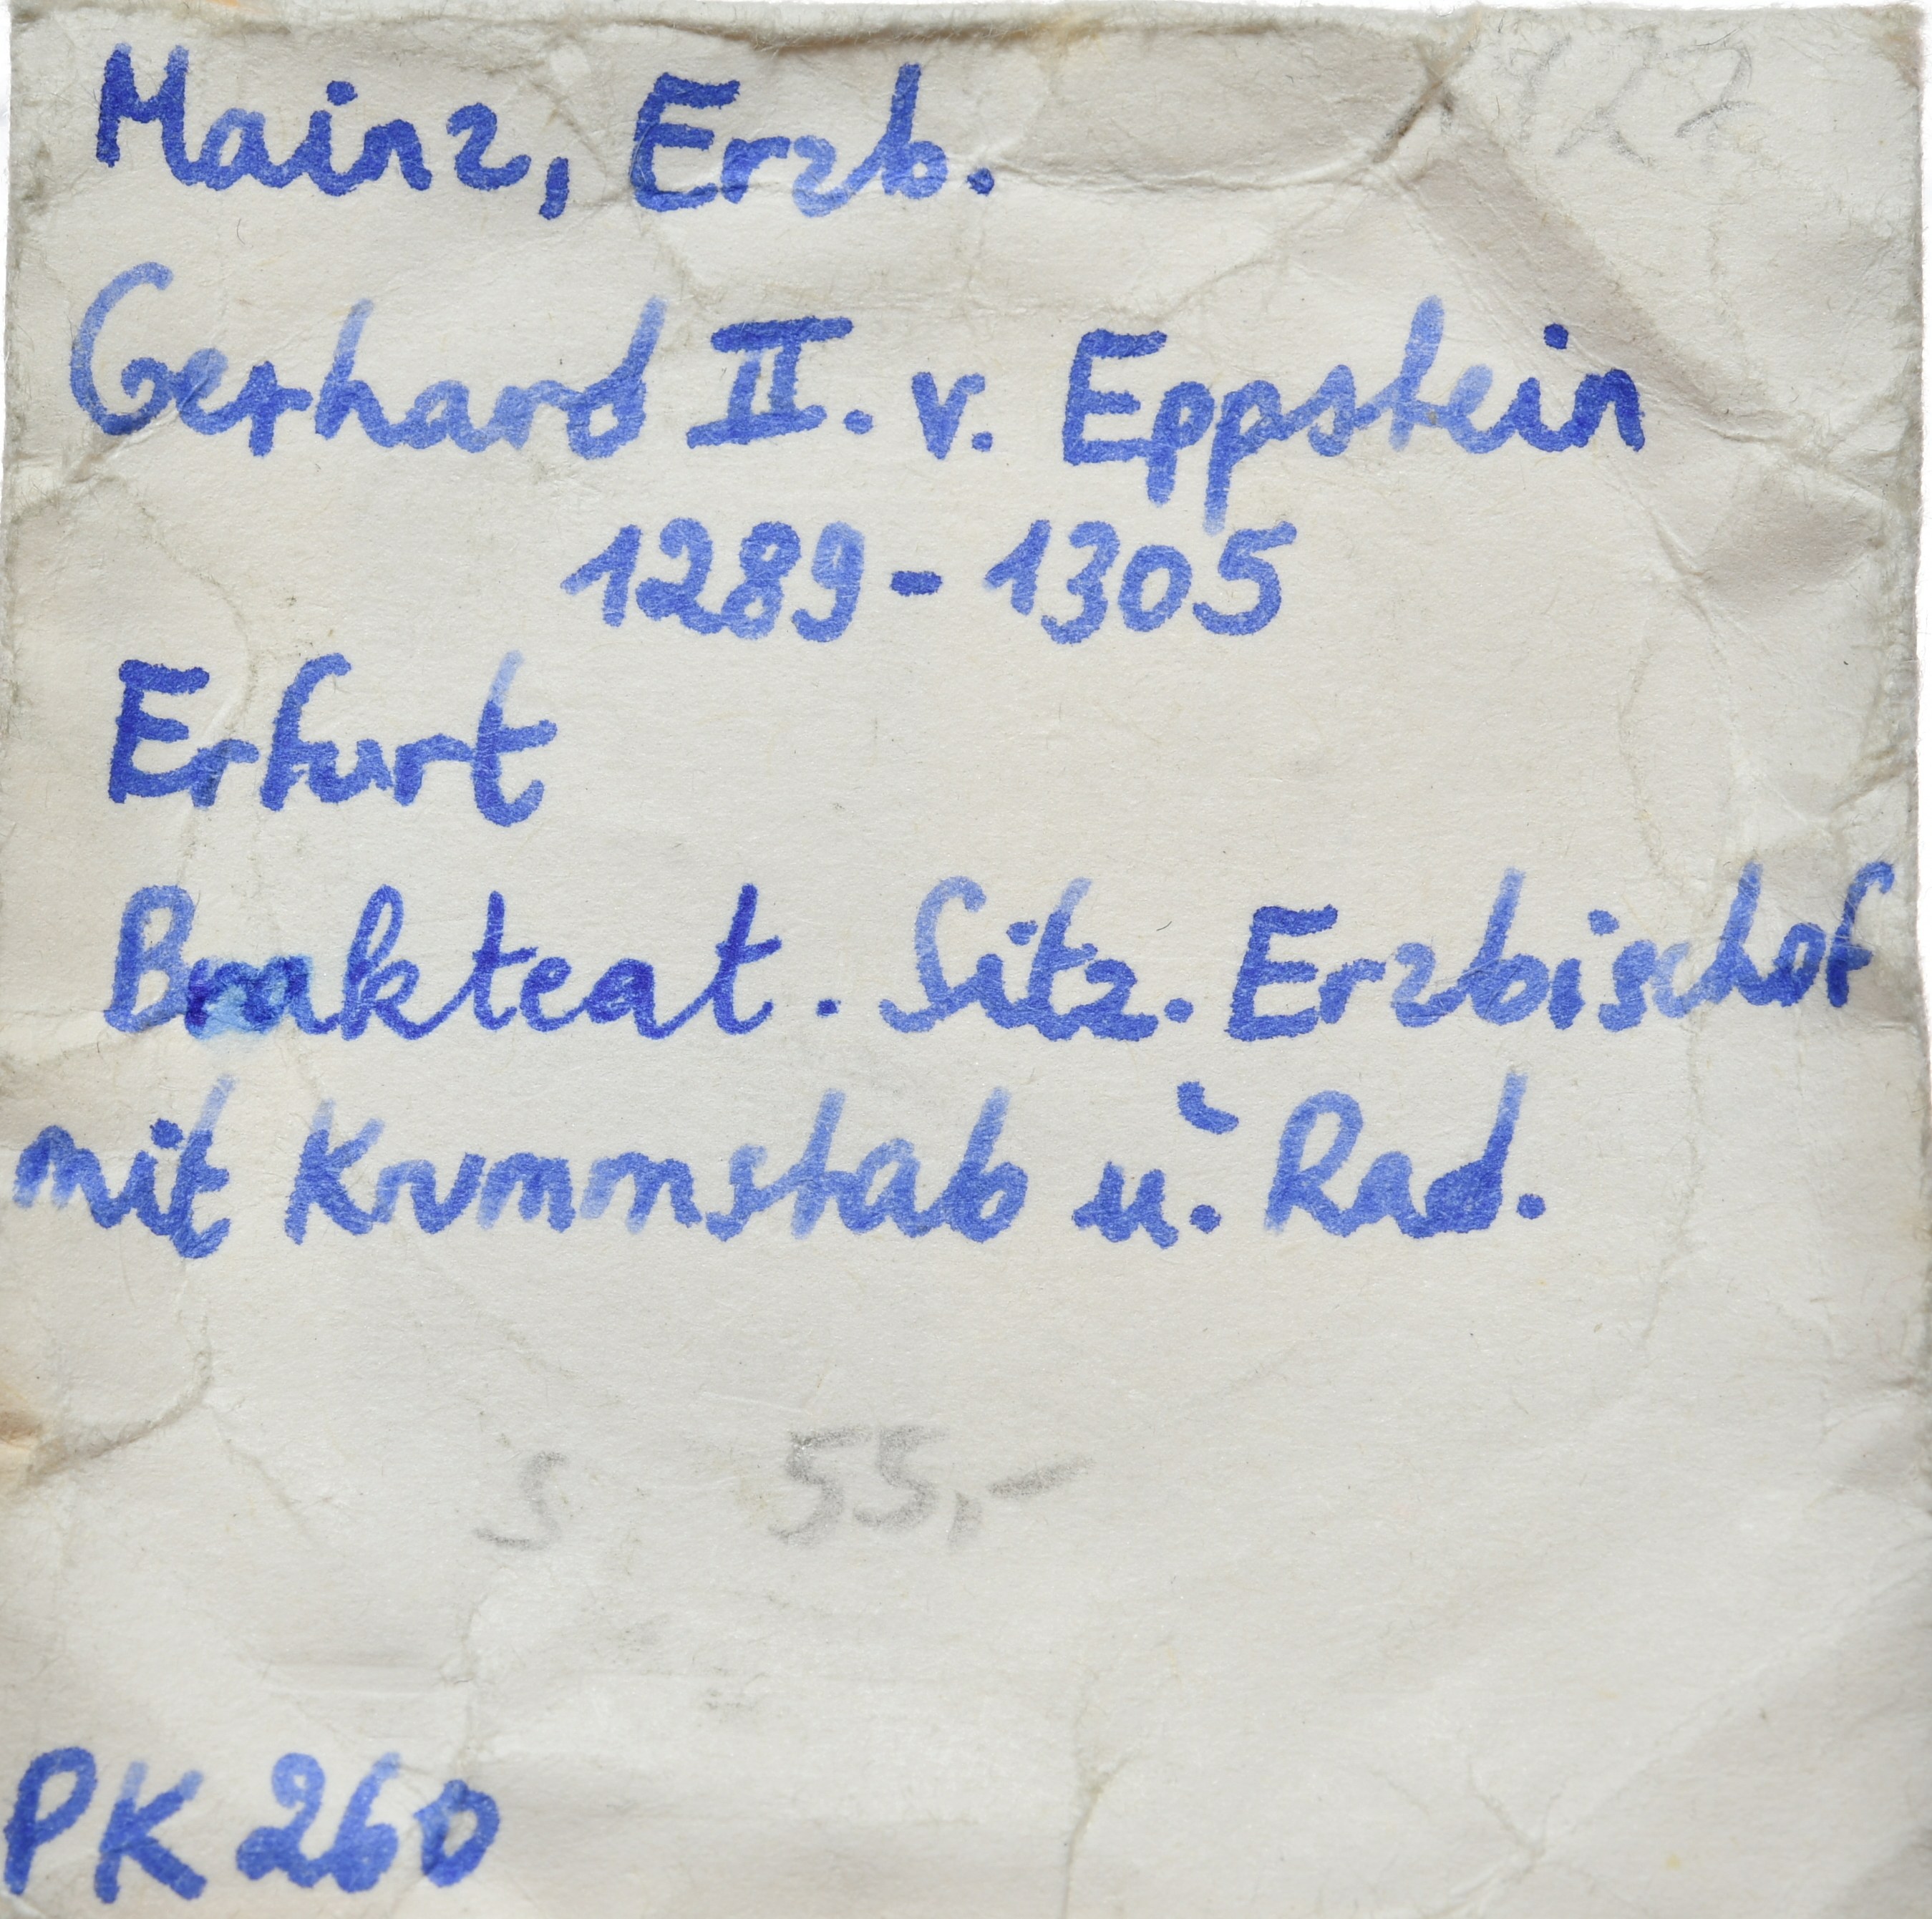 Mainz, Erzb.
Gerhard II. v. Eppstein
1289 - 1305
Erfurt
Brakteat. Sitz. Erzbischof
mit Krummstab u. Rad.
S 55,-
PK 260